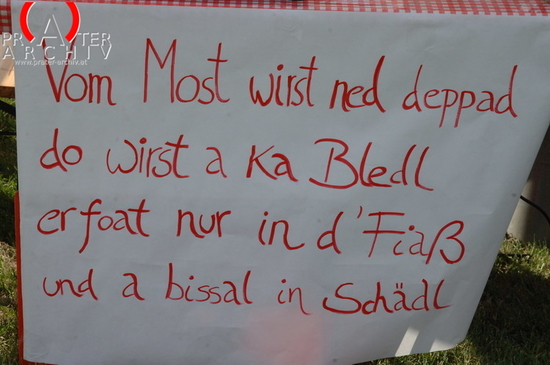 PRATER
ARCHIV
www.prater-archiv.at
Vom Most wirst ned deppad
do wirst a ka Bledl
erfoat nur in d'Fiaß
und a bissal in Schädl